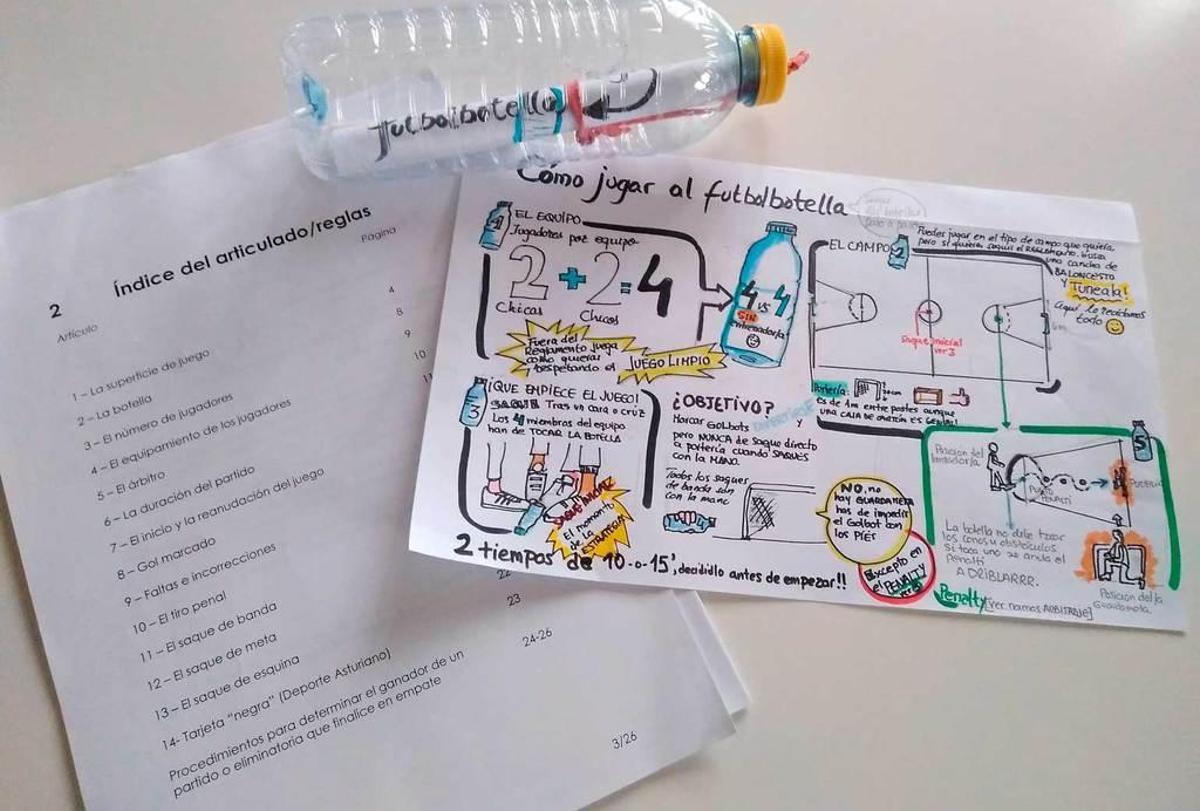 futbolbotella
2 Índice del articulado/reglas
Artículo
Página
1 – La superficie de juego
4
2 – La botella
8
3 – El número de jugadores
9
4 – El equipamiento de los jugadores
10
5 – El árbitro
11
6 – La duración del partido
7 – El inicio y la reanudación del juego
8 – Gol marcado
9 – Faltas e incorrecciones
10 – El tiro penal
11 – El saque de banda
12 – El saque de meta
22
13 – El saque de esquina
23
14- Tarjeta “negra” (Deporte Asturiano)
24-26
Procedimientos para determinar el ganador de un
partido o eliminatoria que finalice en empate
3/26
Cómo jugar al futbolbotella
1
EL EQUIPO
Jugadores por equipo
2 + 2 = 4
Chicas Chicos
4 vs 4
SIN
entrenador/a
Fuera del
Reglamento juega
como quieras
respetando el
JUEGO LIMPIO
EL CAMPO 2
Puedes jugar en el tipo de campo que quieras,
pero si quieres seguir el Reglamento, busca
una cancha de
BALONCESTO
Y
Tuneala!
Aquí lo reciclamos
todo
Saque inicial
ver 3
Portería:
es de 1m entre postes aunque
UNA CAJA DE CARTÓN ES GENIAL!
3
¡QUE EMPIECE EL JUEGO!
SAQUE Tras un cara o cruz
Los 4 miembros del equipo
han de TOCAR LA BOTELLA
SAQUE INICIAL
El momento
de la
ESTRATEGIA
¿OBJETIVO?
Marcar GOLbots y
pero NUNCA de saque directo
a portería cuando SAQUES
CON LA MANO.
Todos los saques
de banda son
con la mano
NO, no
hay GUARDAMETA
has de impedir
el Golbot con
los PIES
Excepto en
el PENALTY
2 tiempos de 10-o-15', decididlo antes de empezar!!
5
Posición del
lanzador/a
PUNTO
PENALTI
La botella no debe tocar
los conos u obstáculos
si toca uno se anula el
penalti
A DRIBLARRR.
Posición del/a
Guardameta
Penalty [Ver normas ARBITRAJE]